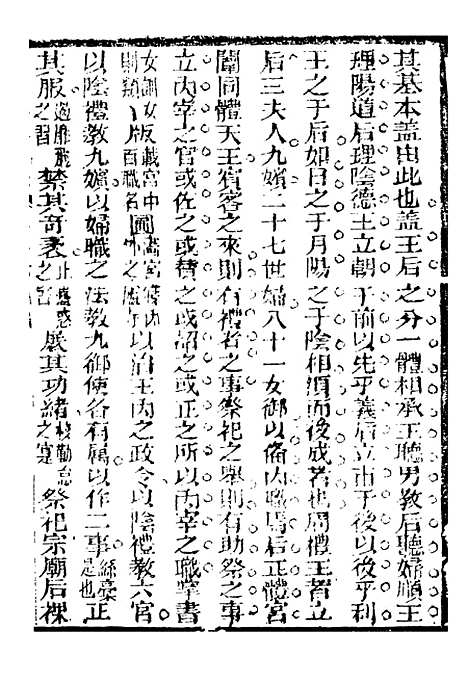 其基本盖由此也盖王后之分一體相承王聽男教后聽婦順王
理陽道后理陰德王立朝于前以先乎義后立市于後以後乎利
王之于后如日之于月陽之于陰相須而後成者也周禮王者立
后三夫人九嬪二十七世婦八十一女御以備内職焉后正體宮
闈同體天王賓客之來則有禮者之事祭祀之舉則有助祭之事
立内宰之官或佐之或替之或詔之或正之所以内宰之職掌書
女訓女版藏宮中圖畫宮則類版百職名以治王内之政令以陰禮教六宮
以陰禮教九嬪以婦職之法教九御使各有屬以作二事絲枲是也正
其服之習禁其奇衺之惑展其功緒之寔祭祀宗廟后祼